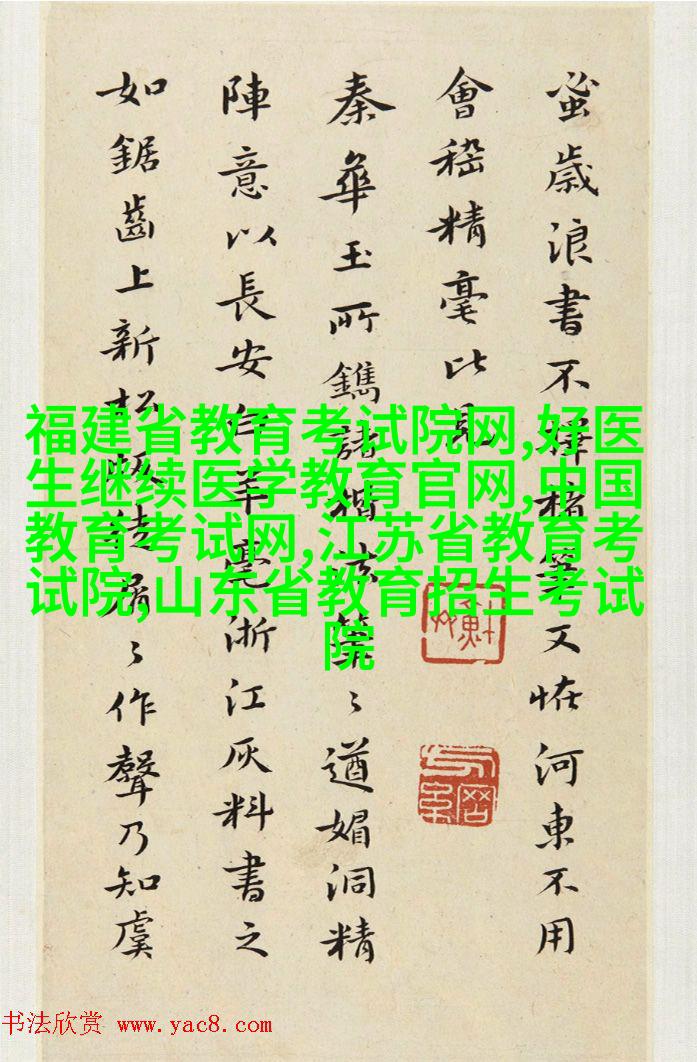 蚤歲浪書不擇楮筆又怪河東不用
會稽精毫比見
秦華玉所鐫諸楷法筆〻遒媚洞精
陣意以長安羊毫浙江灰料書之
如鋸齒上新松板徒屑〻作聲乃知虞
福建省教育考试院网,好医
生继续医学教育官网,中国
教育考试网,江苏省教育考
试院,山东省教育招生考试
院
书法欣赏 www.yac8.com